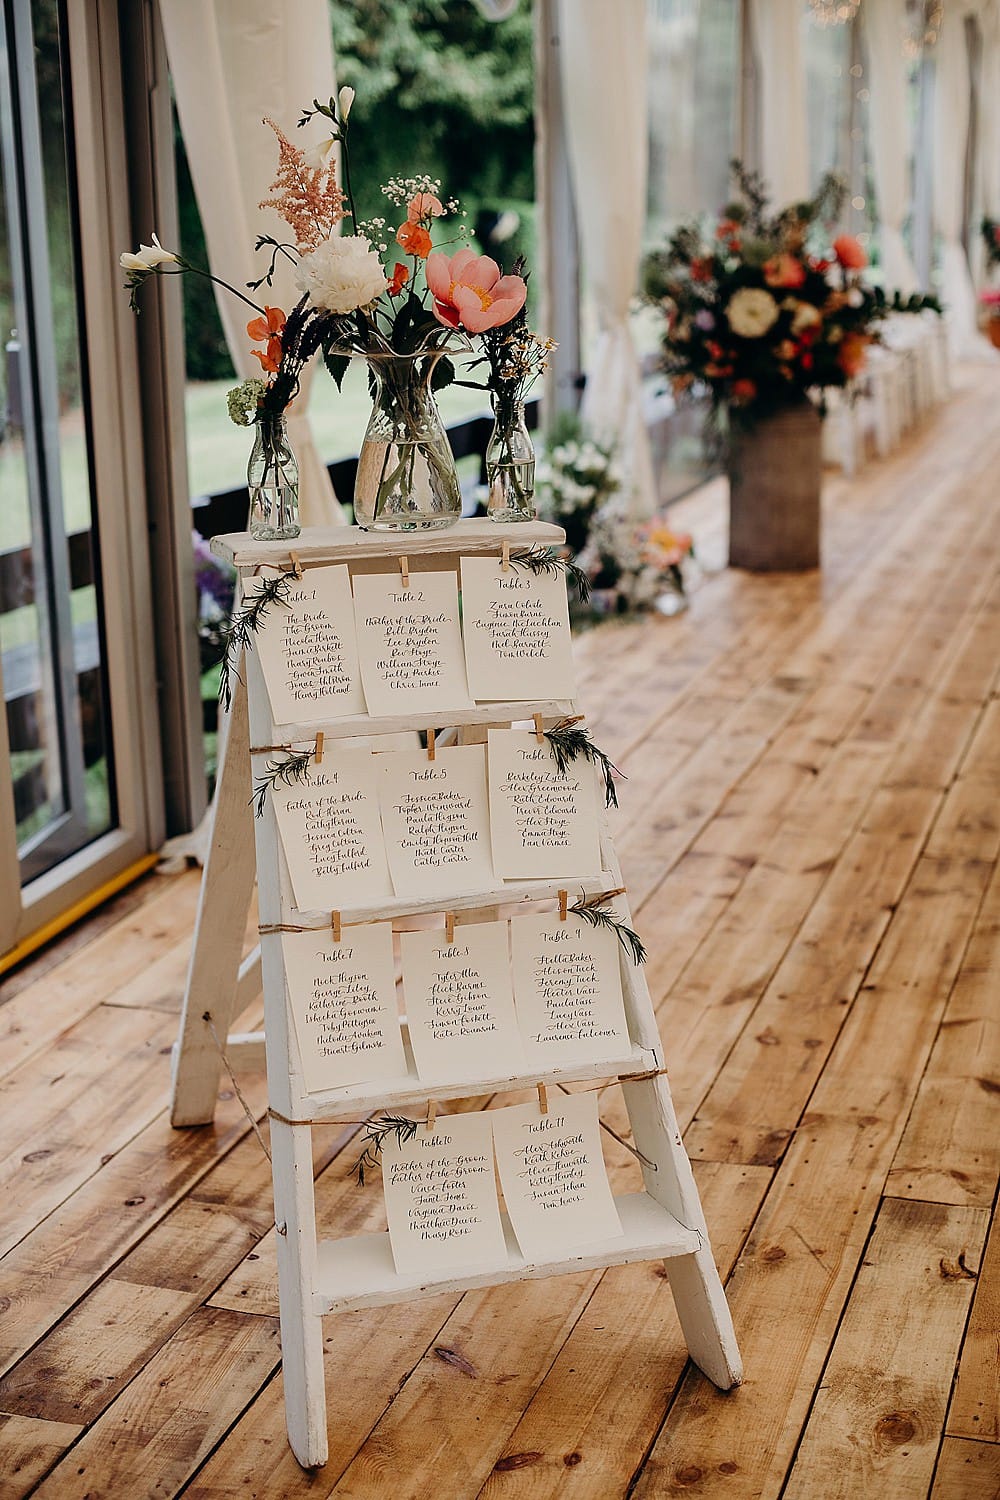 Table 1
The Bride
The Groom
Nicola Horan
Jamie Birkett
Mary
Gwen Smith
Jonas
Henry Holland
Table 2
Mother of the Bride
Bill Brydon
Lee Brydon
Bev Stoye
William Stoye
Sally Parkes
Chris Innes
Table 3
Zara
Simon Burns
Eugenie McLachlan
Sarah Hussey
Mel Barnett
Tom Welch
Table 4
Father of the Bride
Rod Horan
Cathy Horan
Jessica Colton
Greg Colton
Lucy Fulford
Betty Fulford
Table 5
Jessica Baker
Topher Winward
Paula Higson
Ralph Higson
Emily Higson Hill
Matt Carter
Cathy Carter
Table
Berkeley Zych
Alex Greenwood
Ruth Edwards
Trevor Edwards
Alex Stoye
Emma Stoye
Ian Vermes
Table 7
Nick Higson
George Liley
Katherine Booth
Isheeka Goswami
Toby Pettigrew
Melodie Avakian
Stuart Gilmore
Table 8
Tyler Allen
Flick Burns
Steve Gibson
Kerry Louw
Simon Corkett
Kate
Table 9
Stella Baker
Alison Tuck
Jeremy Tuck
Hector Vass
Paula Vass
Lucy Vass
Alex Vass
Laurence Falconer
Table 10
Mother of the Groom
Father of the Groom
Vince Foster
Janet Jones
Virginia Davis
Matthew Davis
Mary Ross
Table 11
Alex Ashworth
Keith Kehoe
Alice Haworth
Kitty Hanley
Susan Jehan
Tom Lewis